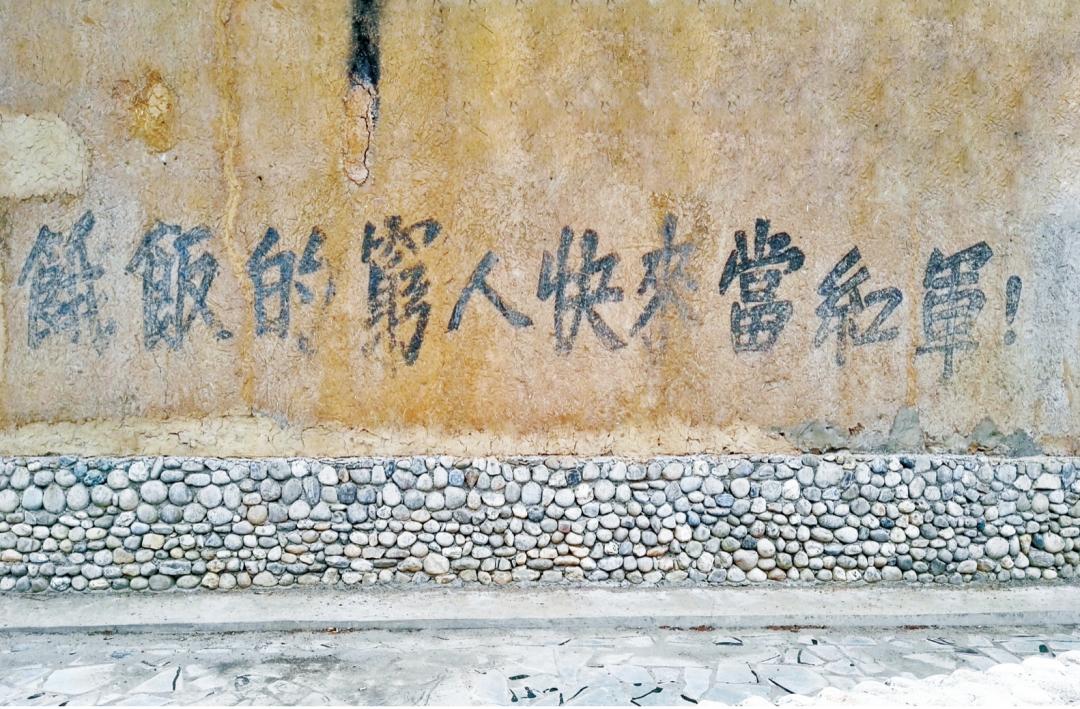 餓飯的窮人快來當紅軍!